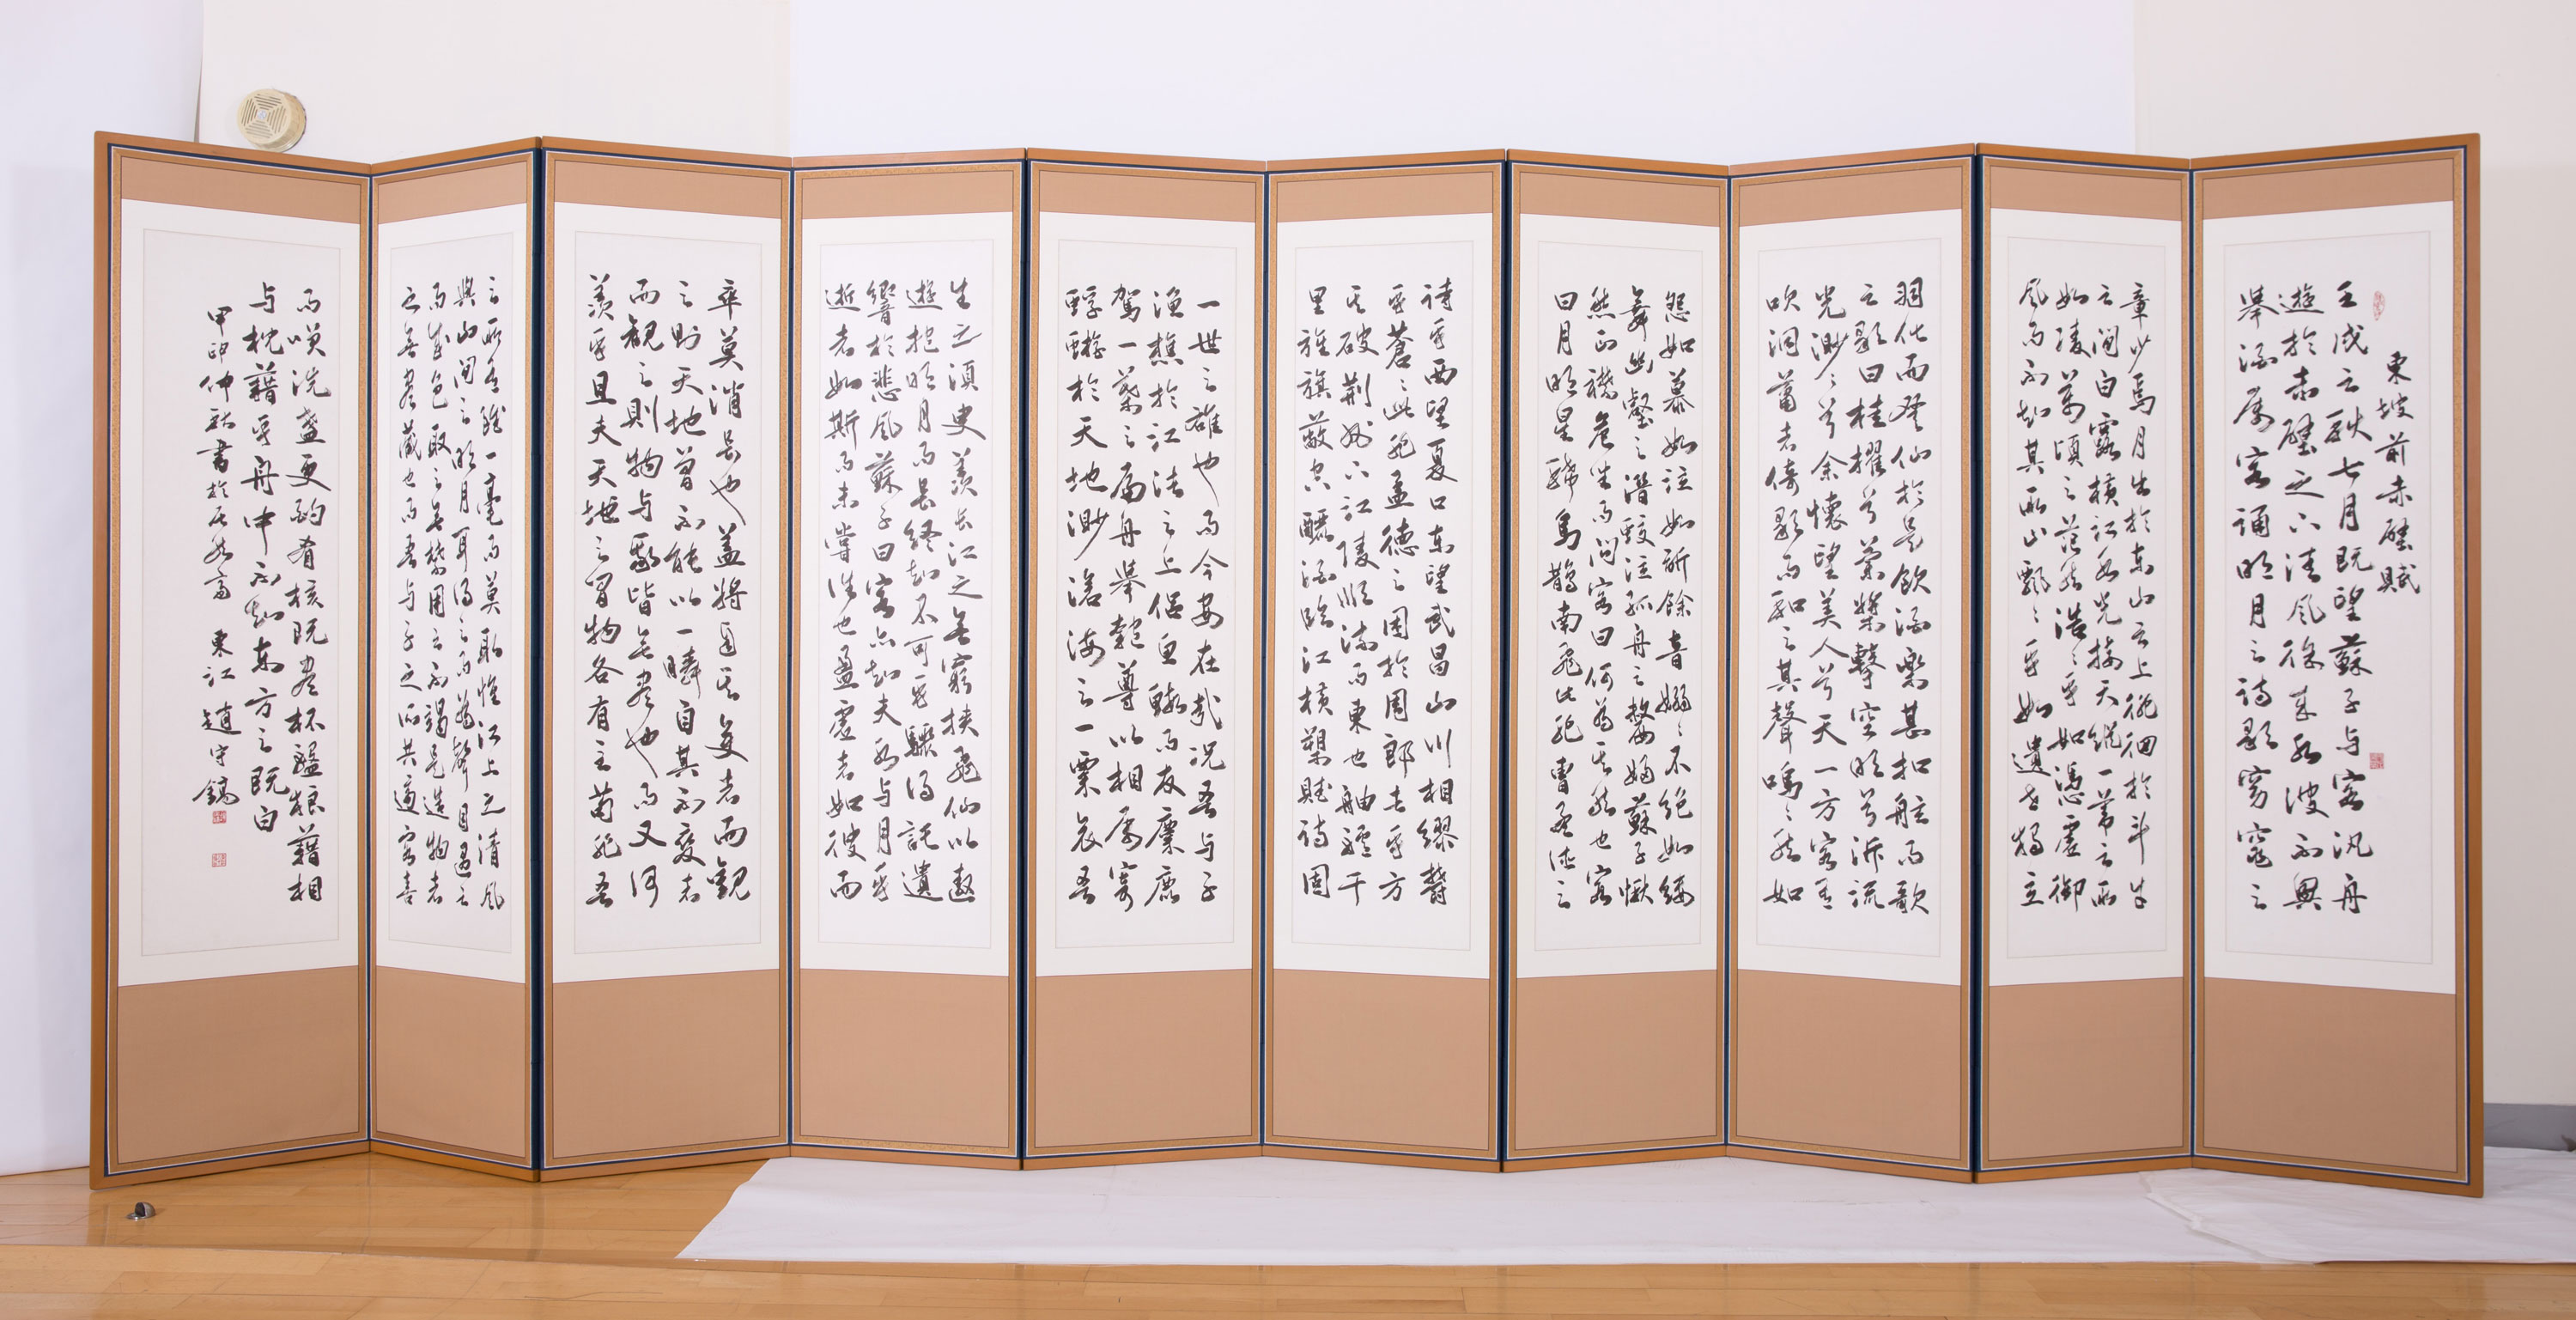 東坡前赤壁賦
壬戌之秋七月既望蘇子与客汎舟
遊於赤壁之下清風徐来水波不興
擧酒属客誦明月之詩歌窈窕之
章少焉月出於東山之上徘徊於斗牛
之間白露横江水光接天縦一葦之所
如凌萬頃之茫然浩〻乎如憑虚御
風而不知其所止飄〻乎如遺世獨立
羽化而登仙於是飲酒樂甚扣舷而歌
之歌曰桂櫂兮蘭槳擊空明兮泝流
光渺〻兮余懷望美人兮天一方客有
吹洞簫者倚歌而和之其聲嗚〻然如
怨如慕如泣如訴餘音嫋〻不絶如縷
舞幽壑之潛蛟泣孤舟之嫠婦蘇子愀
然正襟危坐而問客曰何為其然也客
曰月明星稀烏鵲南飛此非曹孟德之
詩乎西望夏口東望武昌山川相繆鬱
乎蒼〻此非孟德之困於周郎者乎方
其破荊州下江陵順流而東也舳艫千
里旌旗蔽空釃酒臨江横槊賦詩固
一世之雄也而今安在哉况吾与子
漁樵於江渚之上侶魚鰕而友麋鹿
駕一葉之扁舟擧匏尊以相属寄
蜉蝣於天地渺滄海之一粟哀吾
生之須臾羨長江之無窮挾飛仙以遨
遊抱明月而長終知不可乎驟得託遺
響於悲風蘇子曰客亦知夫水与月乎
逝者如斯而未嘗往也盈虚者如彼而
卒莫消長也蓋將自其変者而觀
之則天地曾不能以一瞬自其不変者
而觀之則物与我皆無盡也而又何
羨乎且夫天地之間物各有主苟非吾
之所有雖一毫而莫取惟江上之清風
與山間之明月耳得之而為聲目遇之
而成色取之無禁用之不竭是造物者
之無盡藏也而吾与子之所共適客喜
而笑洗盞更酌肴核既盡杯盤狼藉相
与枕藉乎舟中不知東方之既白
甲申仲秋書於 東江 趙守鎬